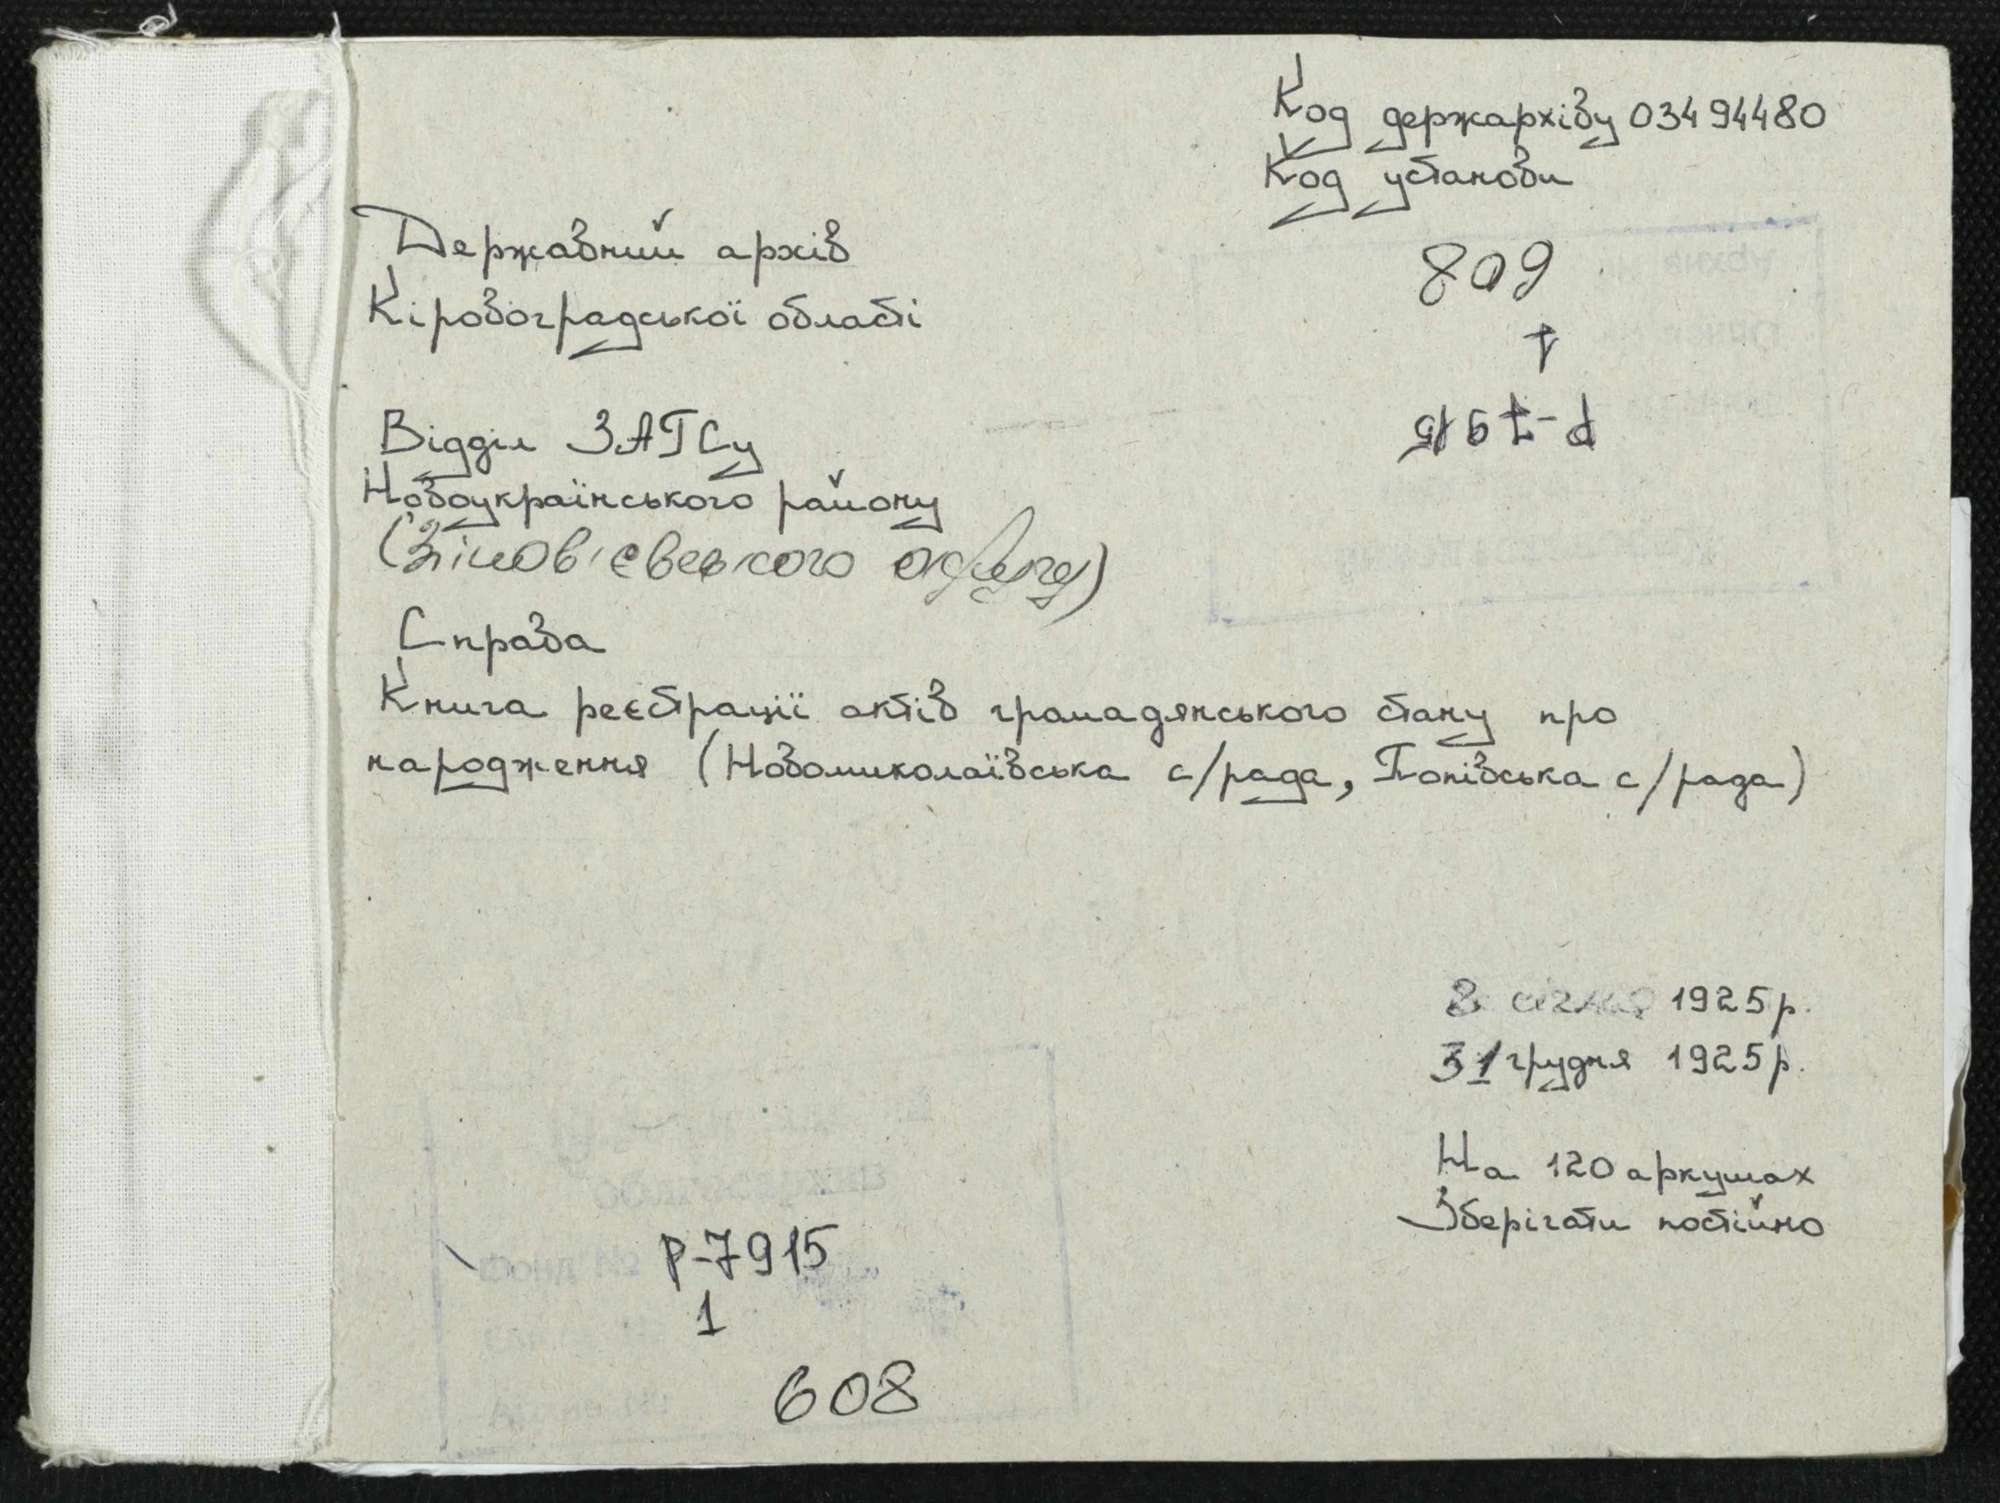 Код держархіву 03494480
Код установи
Державний архів
Кіровоградської області
608
1
Р-7915
Відділ ЗАГСу
Новоукраїнського району
(Зінов'євського округу)
Справа
Книга реєстрації актів громадянського стану про
народження (Новомиколаївська с/рада, Попівська с/рада)
8 січня 1925р.
31 грудня 1925р.
На 120 аркушах
Зберігати постійно
Р-7915
1
608